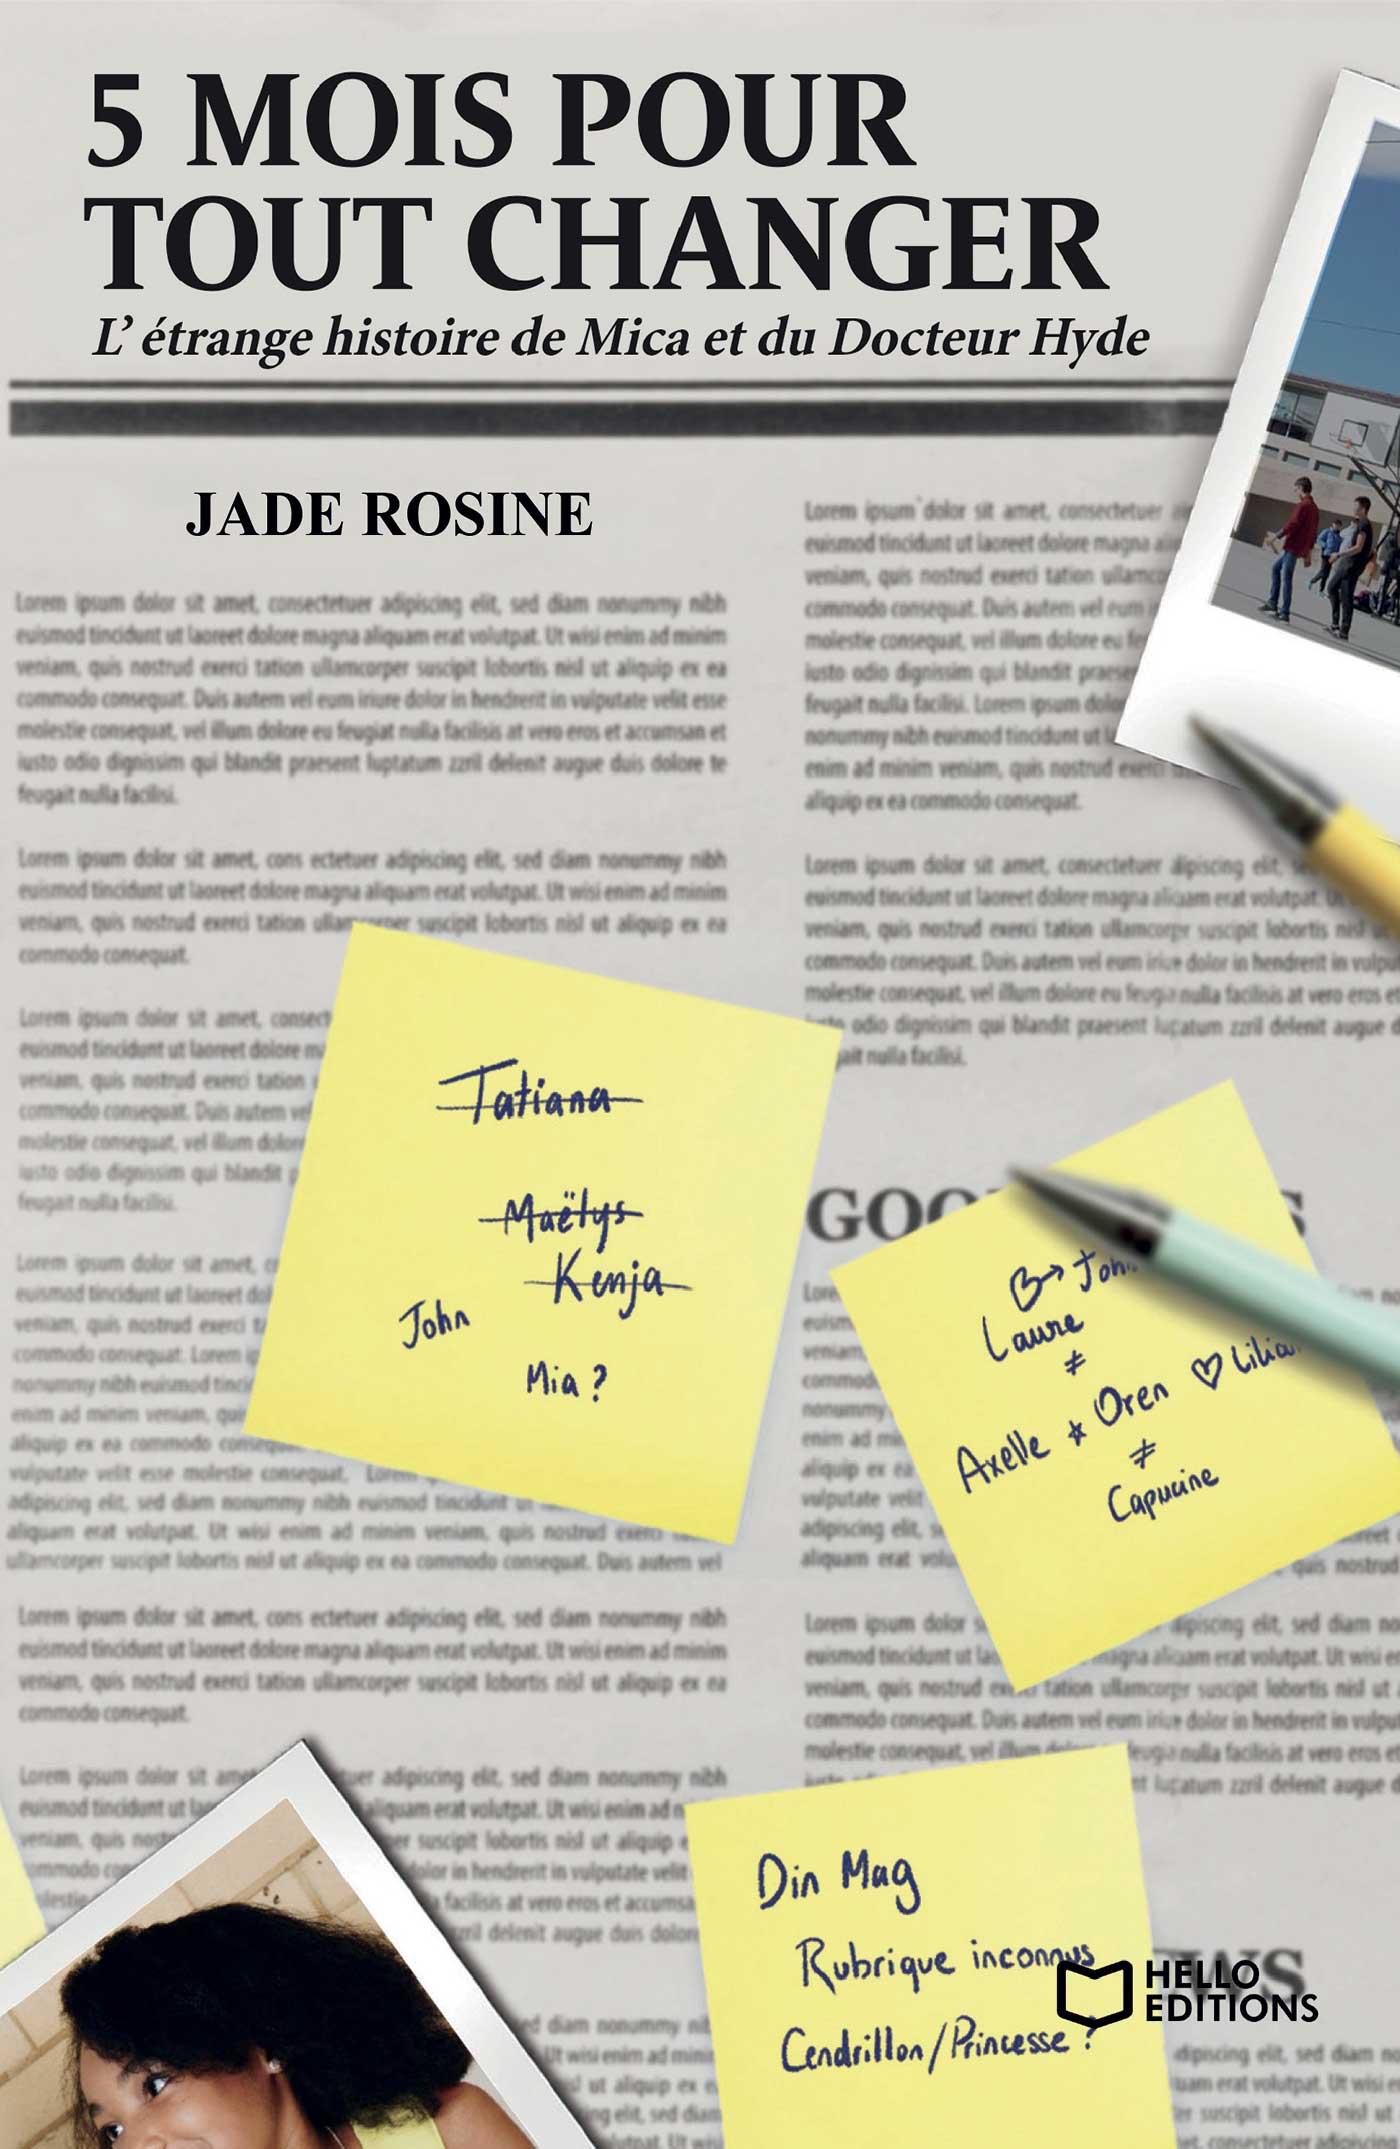 5 MOIS POUR
TOUT CHANGER
L' étrange histoire de Mica et du Docteur Hyde
JADE ROSINE
Lorem ipsum dolor sit amet, consectetuer adipiscing elit, sed diam nonummy nibh
euismod tincidunt ut laoreet dolore magna aliquam erat volutpat. Ut wisi enim ad minim
veniam, quis nostrud exerci tation ullamcorper suscipit lobortis nisl ut aliquip ex ea
commodo consequat. Duis autem vel eum iriure dolor in hendrerit in vulputate velit esse
molestie consequat, vel illum dolore eu feugiat nulla facilisis at vero eros et accumsan et
iusto odio dignissim qui blandit praesent luptatum zzril delenit augue duis dolore te
feugait nulla facilisi.
Lorem ipsum dolor sit amet, cons ectetuer adipiscing elit, sed diam nonummy nibh
euismod tincidunt ut laoreet dolore magna aliquam erat volutpat. Ut wisi enim ad minim
veniam, quis nostrud exerci tation ullamcorper suscipit lobortis nisl ut aliquip ex ea
commodo consequat.
Lorem ipsum dolor sit amet,
euismod tincidunt ut laoreet dolore
veniam, quis nostrud exerci tation
commodo consequat. Duis autem
molestie consequat, vel illum
iusto odio dignissim qui blandit
feugait nulla facilisi.
Tatiana
Maëlys
Kenja
John
Mia ?
Lorem ipsum dolor sit amet,
euismod tincidunt ut laoreet
veniam, quis nostrud exerci
commodo consequat. Lorem
nonummy nibh euismod
enim ad minim veniam,
aliquip ex ea commodo
vulputate velit esse molestie consequat, Lorem
adipiscing elit, sed diam nonummy nibh euismod tincidunt ut
aliquam erat volutpat. Ut wisi enim ad minim veniam, quis nostrud exerci
ullamcorper suscipit lobortis nisl ut aliquip ex ea commodo consequat. Duis autem vel
Lorem ipsum dolor sit amet, cons ectetuer adipiscing elit, sed diam nonummy nibh
euismod tincidunt ut laoreet dolore magna aliquam erat volutpat. Ut wisi enim ad minim
veniam, quis nostrud exerci tation ullamcorper suscipit lobortis nisl ut aliquip ex ea
commodo consequat.
Lorem ipsum dolor sit adipiscing elit, sed diam nonummy nibh
euismod tincidunt ut aliquam erat volutpat. Ut wisi enim ad
veniam, quis suscipit lobortis nisl ut aliquip
dolor in hendrerit in vulputate velit
facilisis at vero eros et
zzril delenit augue duis
sed diam nonummy
Ut wisi enim ad
ut aliquip ex
Lorem ipsum dolor sit amet, consectetuer
euismod tincidunt ut laoreet dolore magna
veniam, quis nostrud exerci tation
commodo consequat. Duis autem vel eum
molestie consequat, vel illum dolore eu
iusto odio dignissim qui blandit
feugait nulla facilisi. Lorem ipsum
nonummy nibh euismod tincidunt ut
enim ad minim veniam, quis nostrud exerci
aliquip ex ea commodo consequat.
Lorem ipsum dolor sit amet, consectetuer elit,
euismod tincidunt ut laoreet dolore magna aliquam erat volutpat.
veniam, quis nostrud exerci tation ullamcorper suscipit lobortis nisl
commodo consequat. Duis autem vel eum iriure dolor in hendrerit in
molestie consequat, vel illum dolore eu nulla facilisis at vero eros et
odio dignissim qui blandit praesent zzril delenit augue
nulla facilisi.
→ John
Laure
≠
Axelle ☆ Oren ♡
≠
Capucine
Lorem ipsum dolor adipiscing elit, sed diam
euismod tincidunt ut magna aliquam erat volutpat. Ut wisi
veniam, quis nostrud tation ullamcorper suscipit lobortis nisl ut
commodo consequat. Duis autem vel eum iriure dolor in hendrerit in
molestie consequat, vel nulla facilisis at vero eros et
zzril delenit augue
Din Mag
Rubrique inconnus
Cendrillon/Princesse ?
HELLO
EDITIONS